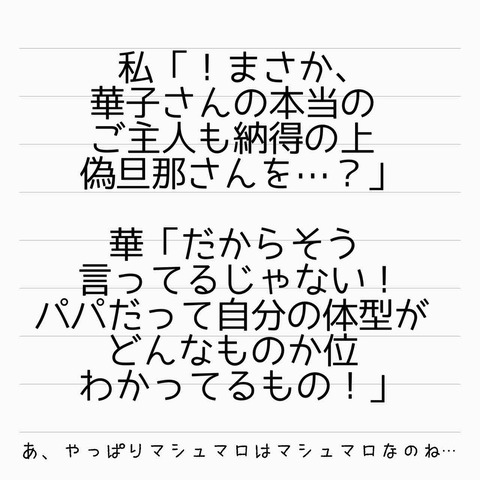 私「！まさか、
華子さんの本当の
ご主人も納得の上
偽旦那さんを…？」
華「だからそう
言ってるじゃない！
パパだって自分の体型が
どんなものか位
わかってるもの！」
あ、やっぱりマシュマロはマシュマロなのね…